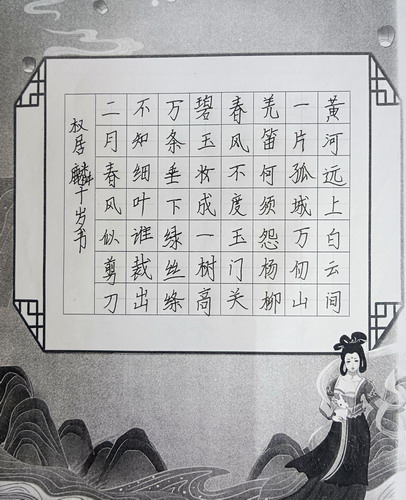 黄河远上白云间
一片孤城万仞山
羌笛何须怨杨柳
春风不度玉门关
碧玉妆成一树高
万条垂下绿丝绦
不知细叶谁裁出
二月春风似剪刀
权居麟十岁书